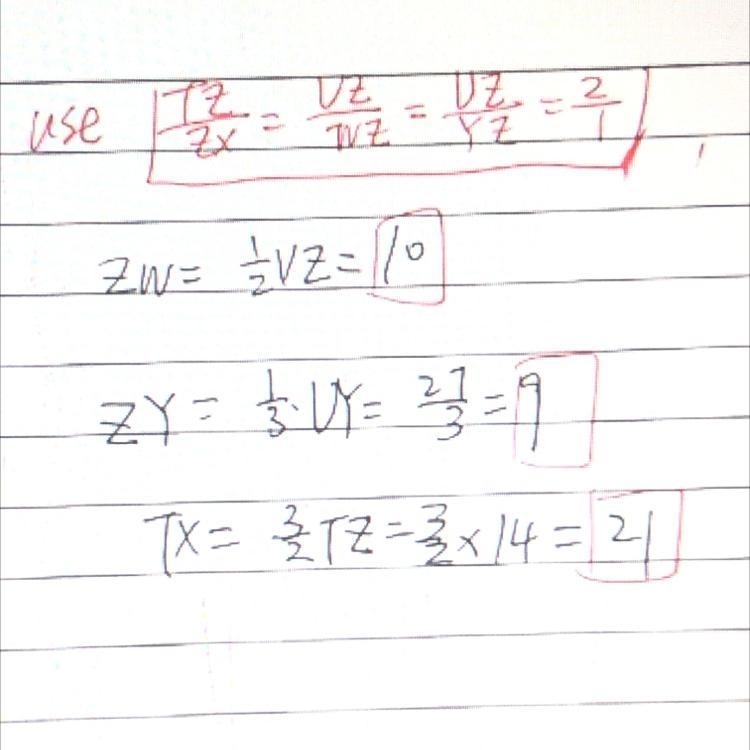 use TZ/ZX = VZ/WZ = UZ/YZ = 2/1
ZW = 1/2 VZ = 10
ZY = 1/3 · UY = 27/3 = 9
TX = 3/2 TZ = 3/2 × 14 = 21